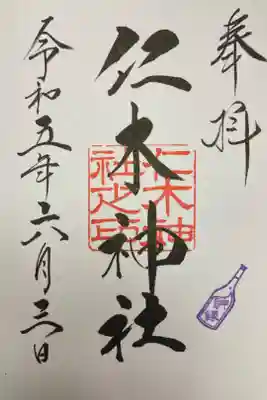 奉拝
仁木神社
仁木神
社之印
令和五年六月三日